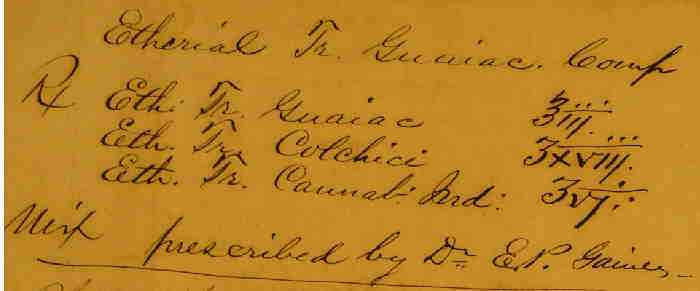 Etherial Tr. Guaiac. Comp
℞ Eth. Tr. Guaiac ʒiij.
Eth. Tr. Colchici ʒxviij.
Eth. Tr. Cannab: Ind: ʒvj.
Mix prescribed by Dr E.P. Gaines